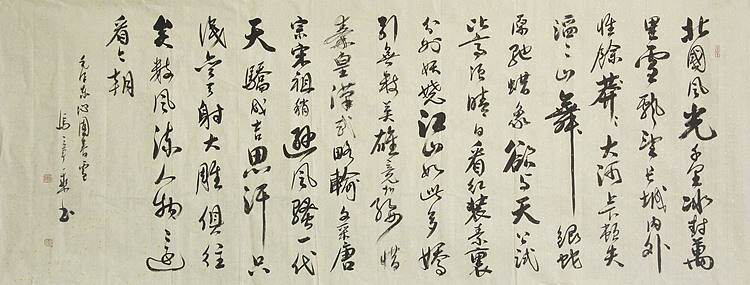 北國風光千里冰封萬
里雪飄望長城内外
惟餘莽々大河上下頓失
滔々山舞銀蛇
原馳蠟象欲与天公試
比高須晴日看紅裝素裹
分外妖嬈江山如此多嬌
引無數英雄競折腰惜
秦皇漢武略輸文采唐
宗宋祖稍遜風騷一代
天驕成吉思汗只
識彎弓射大雕俱往
矣數風流人物還
看今朝
毛澤東沁園春雪
書